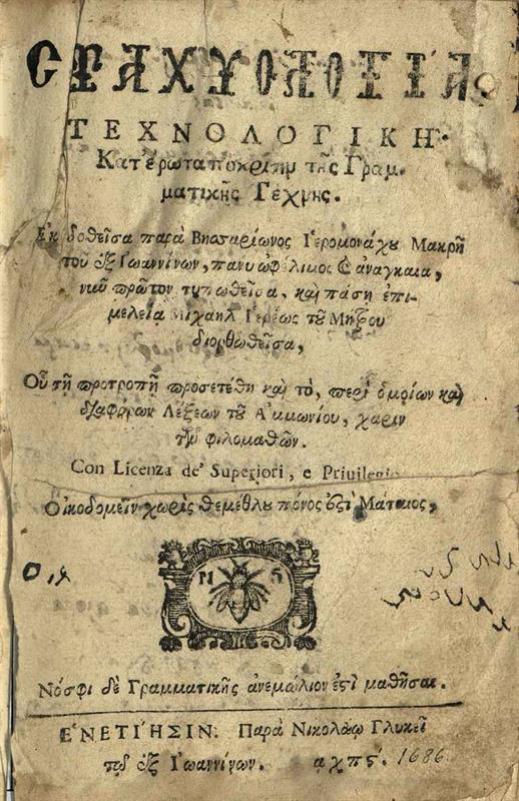 ΣΤΑΧΥΟΛΟΓΙΑ
ΤΕΧΝΟΛΟΓΙΚΗ·
Κατ' ἐρωταπόκρισιν τῆς Γραμ-
ματικῆς Τέχνης.
Ἐκδοθεῖσα παρὰ Βησσαρίωνος Ἱερομονάχου Μακρῆ
τοῦ ἐξ Ἰωαννίνων, πάνυ ὠφέλιμος καὶ ἀναγκαία,
νῦν πρῶτον τυπωθεῖσα, καὶ πάσῃ ἐπι-
μελείᾳ Μιχαὴλ Ἱερέως τοῦ Μήτρου
διορθωθεῖσα,
Οὗ τῇ προτροπῇ προσετέθη καὶ τὸ, περὶ ὁμοίων καὶ
διαφόρων Λέξεων τοῦ Ἀμμωνίου, χάριν
τῶν φιλομαθῶν.
Con Licenza de' Superiori, e Priuilegio
Οἰκοδομεῖν χωρὶς θεμέθλου πόνος ἐστὶ Μάταιος,
N G
Νόσφι δὲ Γραμματικῆς ἀνεμώλιον ἐστὶ μαθῆσαι.
ἘΝΕΤΙΉΣΙΝ: Παρὰ Νικολάῳ Γλυκεῖ
τῷ ἐξ Ἰωαννίνων. αχπϛ΄. 1686